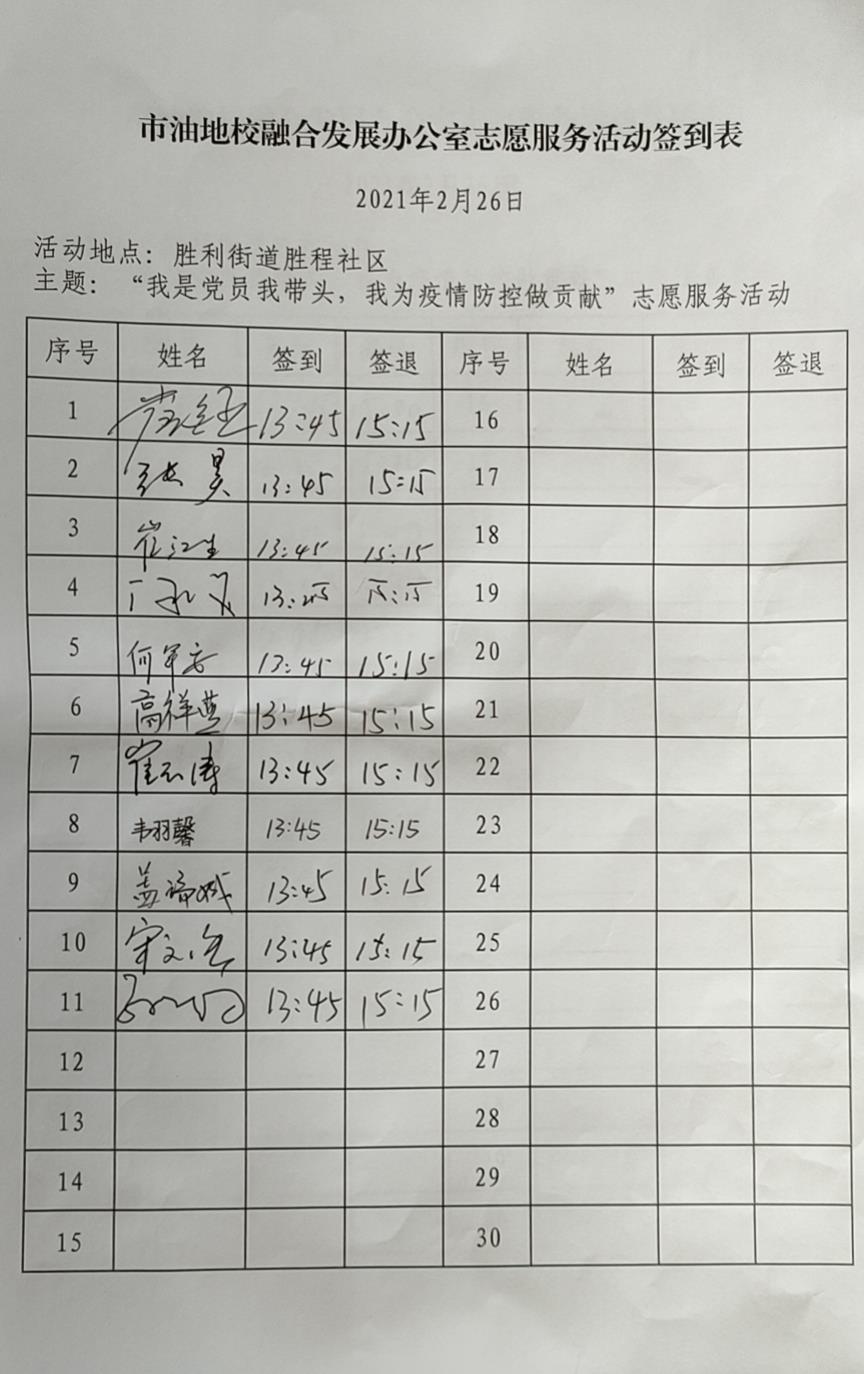 市油地校融合发展办公室志愿服务活动签到表
2021年2月26日
活动地点：胜利街道胜程社区
主题：“我是党员我带头，我为疫情防控做贡献”志愿服务活动
序号 姓名 签到 签退 序号 姓名 签到 签退
1 13:45 15:15 16
2 张昊 13:45 15:15 17
3 崔江生 13:45 15:15 18
4 13:45 15:15 19
5 何军 13:45 15:15 20
6 高祥燕 13:45 15:15 21
7 崔志涛 13:45 15:15 22
8 韦羽馨 13:45 15:15 23
9 盖 13:45 15:15 24
10 宋文 13:45 15:15 25
11 13:45 15:15 26
12 27
13 28
14 29
15 30